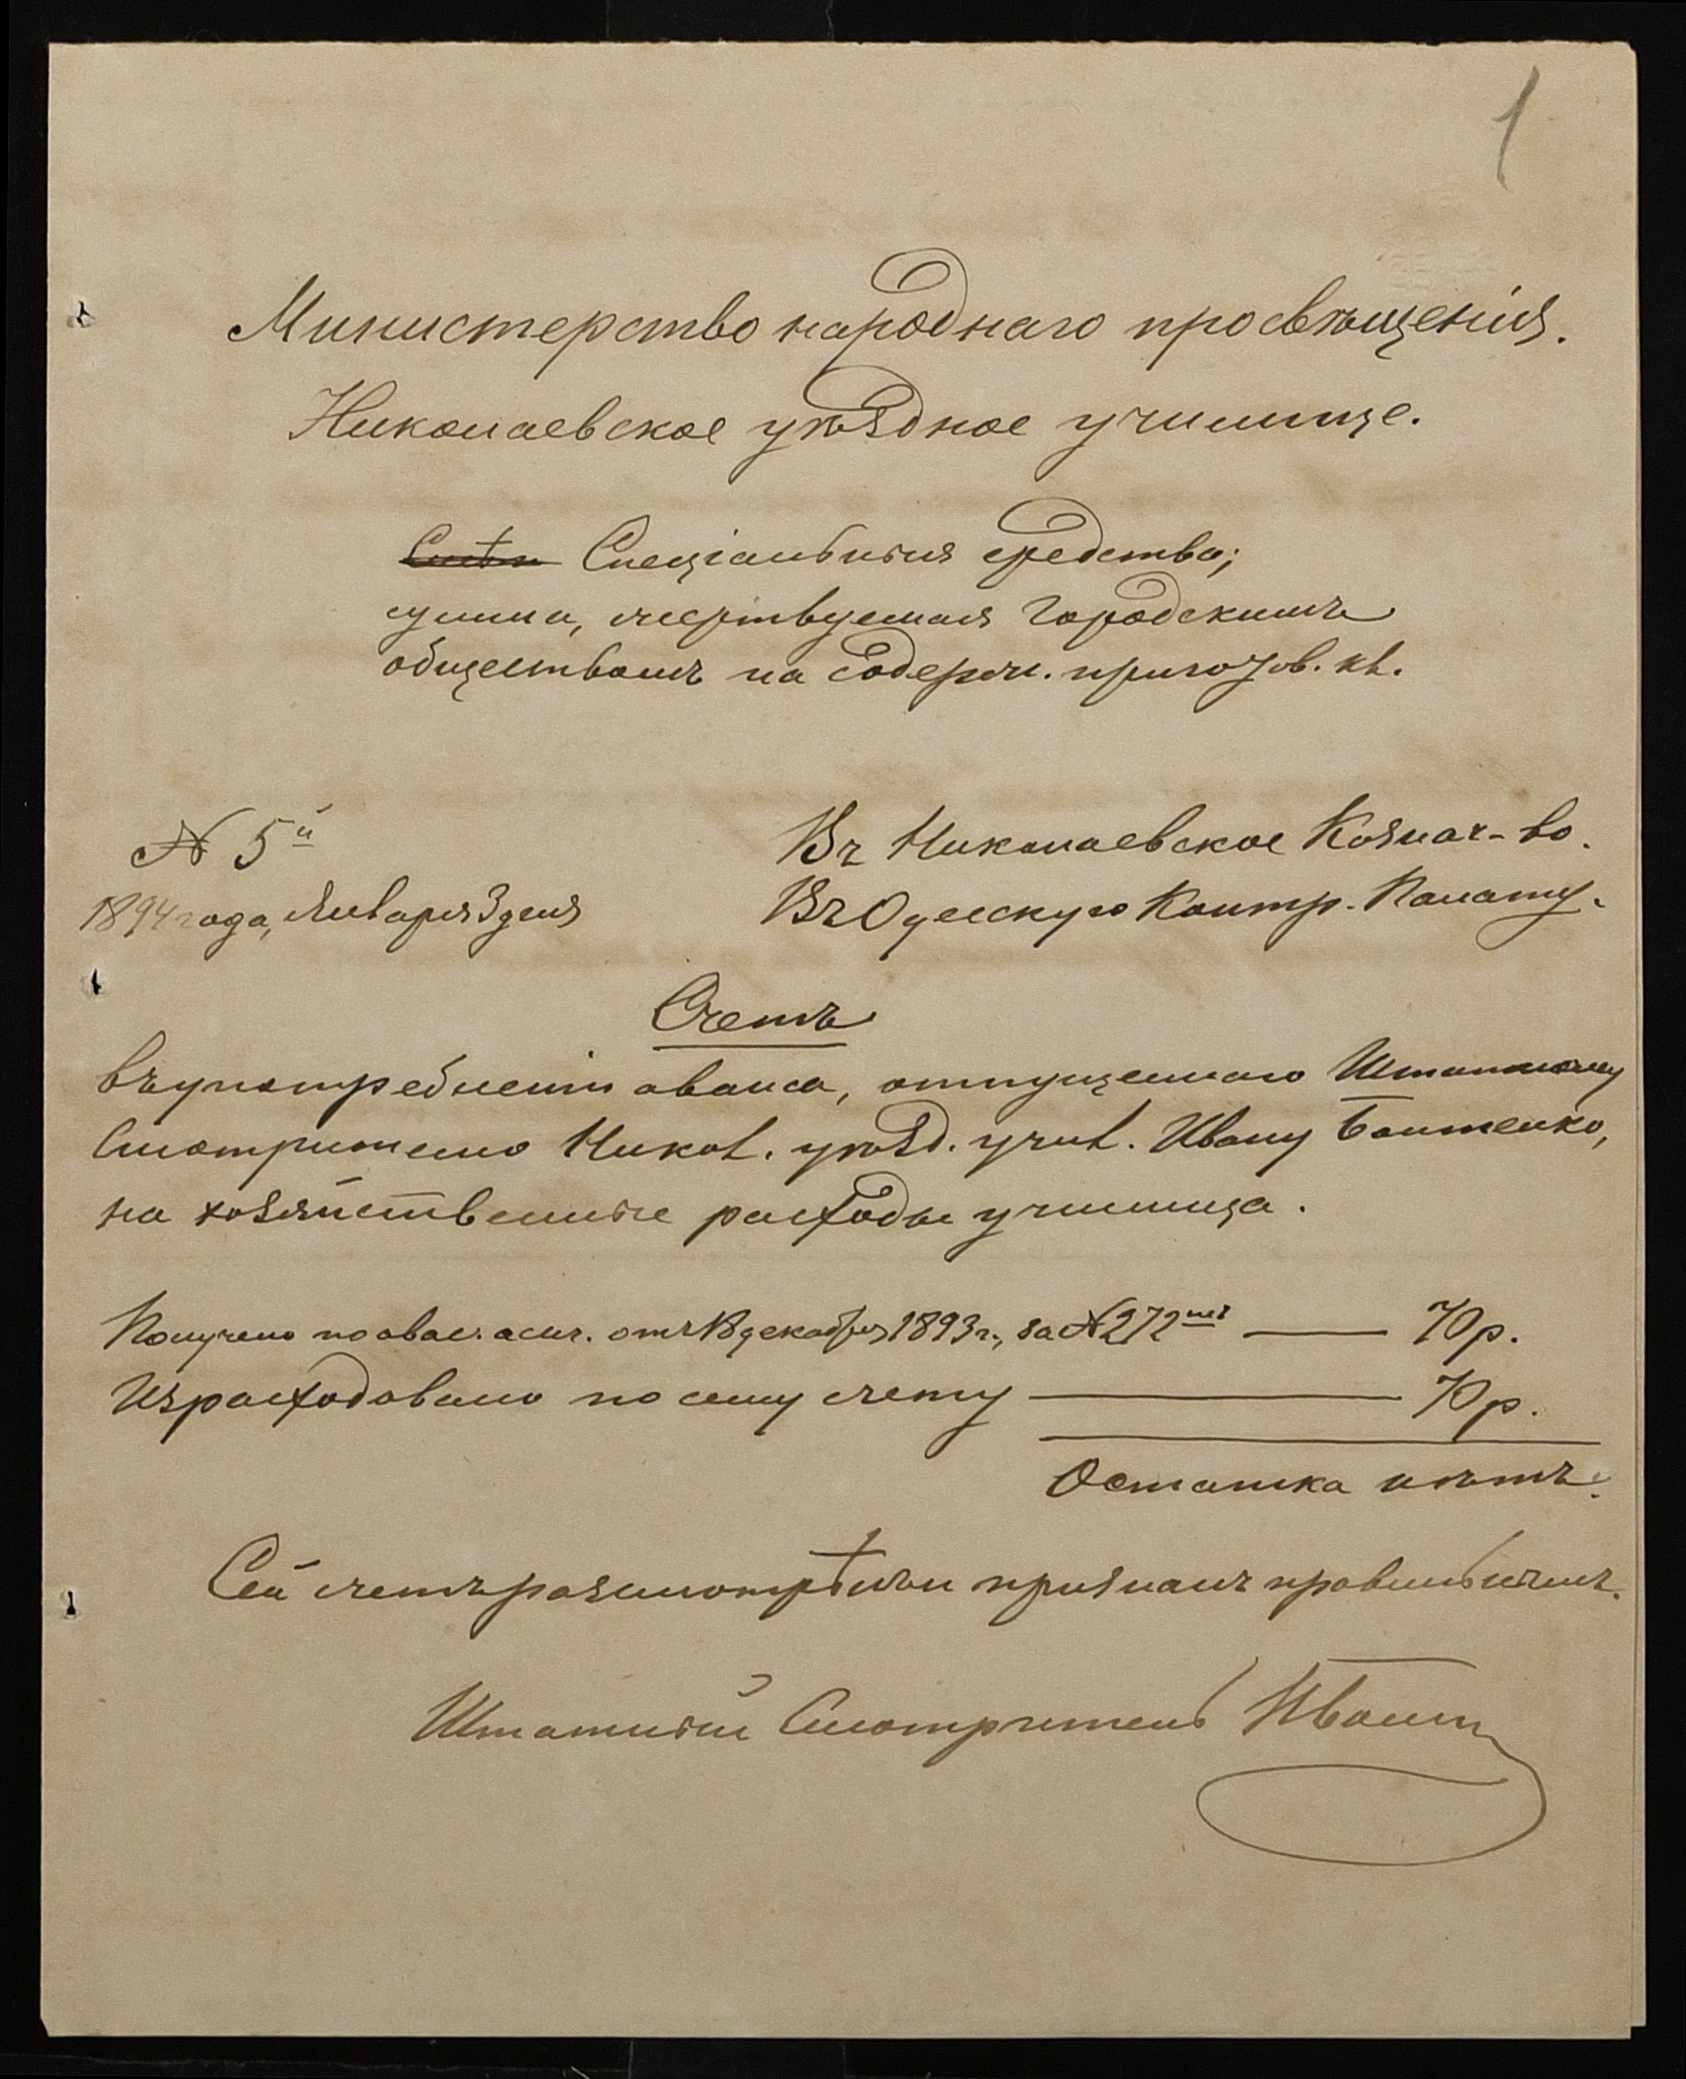 1
Министерство народнаго просвѣщенія.
Николаевское уѣздное училище.
Спеціальныя средства;
сумма, жертвуемая городскимъ
обществомъ на содерж. приготов. кл.
№ 5й
Въ Николаевское Казнач-во.
1894 года, Января 3 дня
Въ Одесскую Контр. Палату.
Счетъ
въ употребленіи аванса, отпущеннаго Штатному
Смотрителю Никол. уѣзд. учил. Ивану
на хозяйственные расходы училища.
Получено по аванс. асиг. отъ 18 декабря 1893 г., за № 272 — 70 р.
Израсходовано по сему счету — 70 р.
Остатка нѣтъ.
Сей счетъ разсмотрѣнъ и признанъ правильнымъ.
Штатный Смотритель